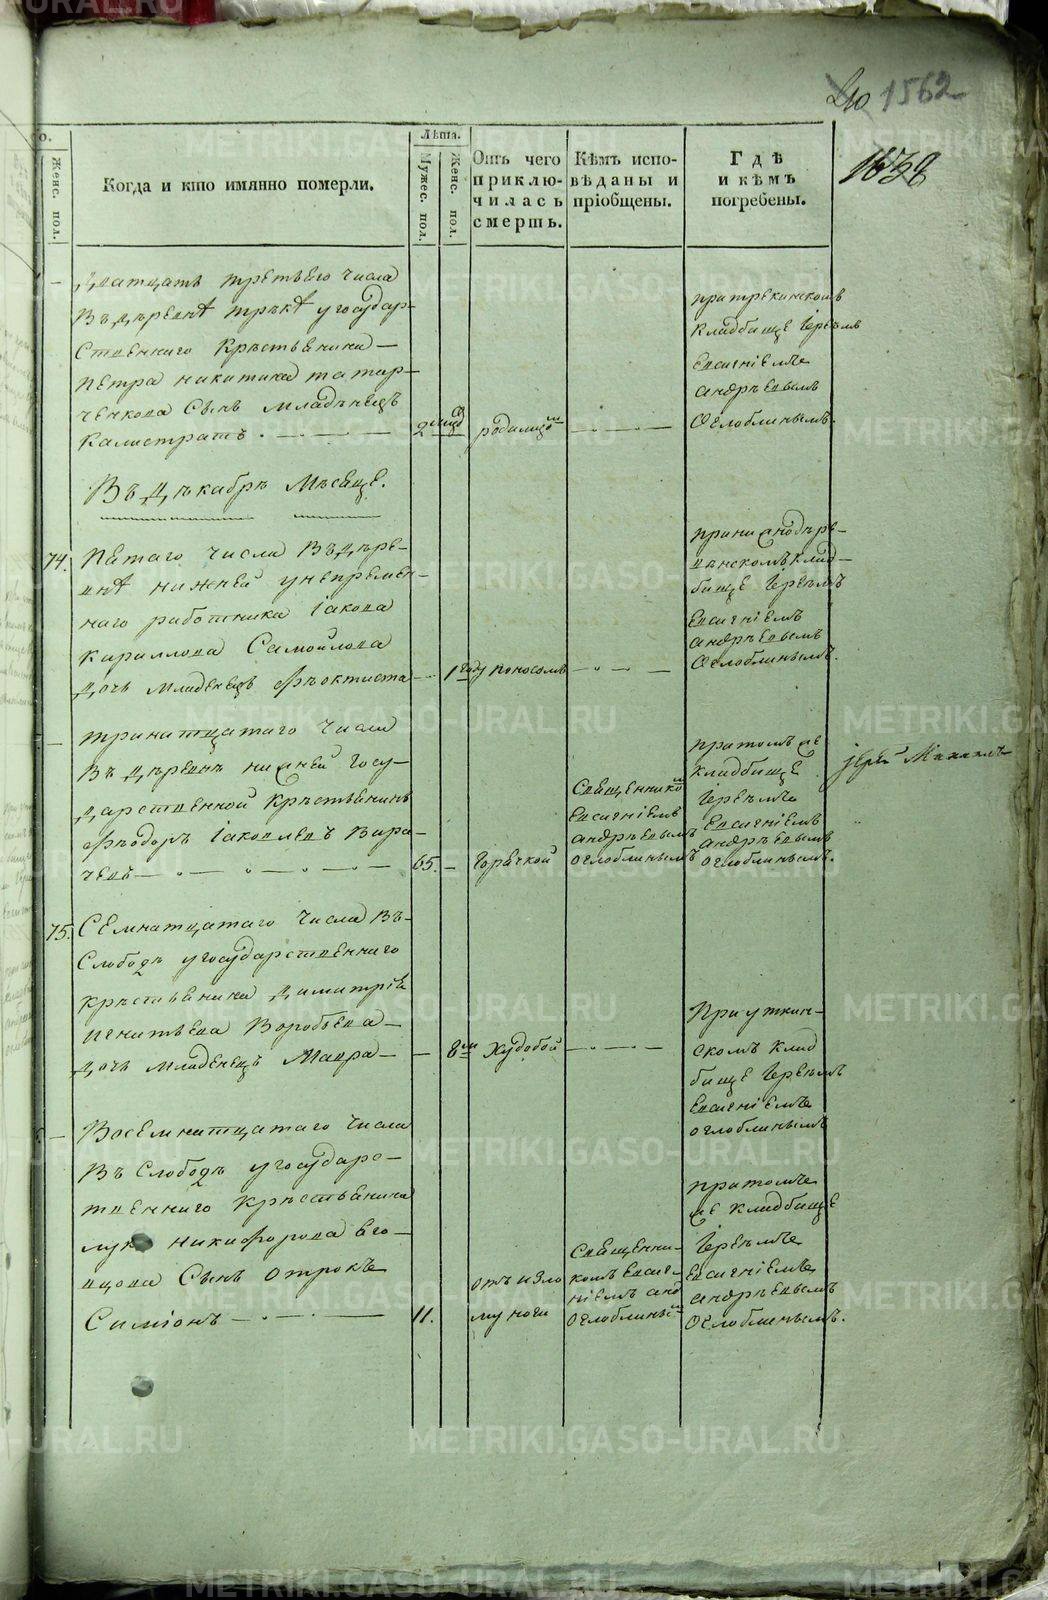 1562
1638
о.
Женс. пол.
Когда и кто имянно померли.
Лѣта.
Мужес. пол.
Женс. пол.
Отъ чего приключилась смерть.
Кѣмъ исповѣданы и пріобщены.
Гдѣ и кѣмъ погребены.
Дватцать третьего числа
въ дѣревнѣ трѣкѣ у государ-
ственнаго крѣстьянина
петра никитина татар-
ченкова сынъ младѣнецъ
Калистратъ.
2
родимцом
при трекинском
кладбище Іереемъ
Евгеніемъ
андрѣевымъ
Оглоблинымъ.
Въ Дѣкабрѣ Мѣсяце.
74.
Пятаго числа въ дѣре-
внѣ нижней у непремен-
наго работника Іакова
Кирилова Самойлова
дочь младенецъ Феоктиста
1 году
поносомъ
при нижнодѣре-
венскомъ клад-
бище Іереемъ
Евгеніемъ
андрѣевымъ
Оглоблинымъ.
тринатцатаго числа
въ дѣревнѣ нижней госу-
дарственной крѣстьянинъ
Феодоръ Іаковлевъ
65.
горячкой
Священником
Евгеніемъ
андрѣевымъ
оглоблинымъ
при томъ же
кладбище
Іереемъ
Евгеніемъ
андрѣевымъ
оглоблинымъ.
Іерей Михаилъ
75.
Семнатцатаго числа въ
Слободѣ у государственнаго
крѣстьянина Димитрія
игнатьева Воробьева
дочь младенецъ Мавра
8
худобой
При уткин-
скомъ клад
бище Іереемъ
Евгеніемъ
оглоблинымъ
Восемнатцатаго числа
въ Слободѣ у государс-
твеннаго крѣстьянина
луки никифорова
сынъ отрокъ
Симіонъ
11.
отъ изло
му ноги
Священни-
комъ Евге-
ніемъ анд
Оглоблиным
при томъ
же кладбище
Іереемъ
Евгеніемъ
андрѣевымъ
Оглоблинымъ.
METRIKI.GASO-URAL.RU